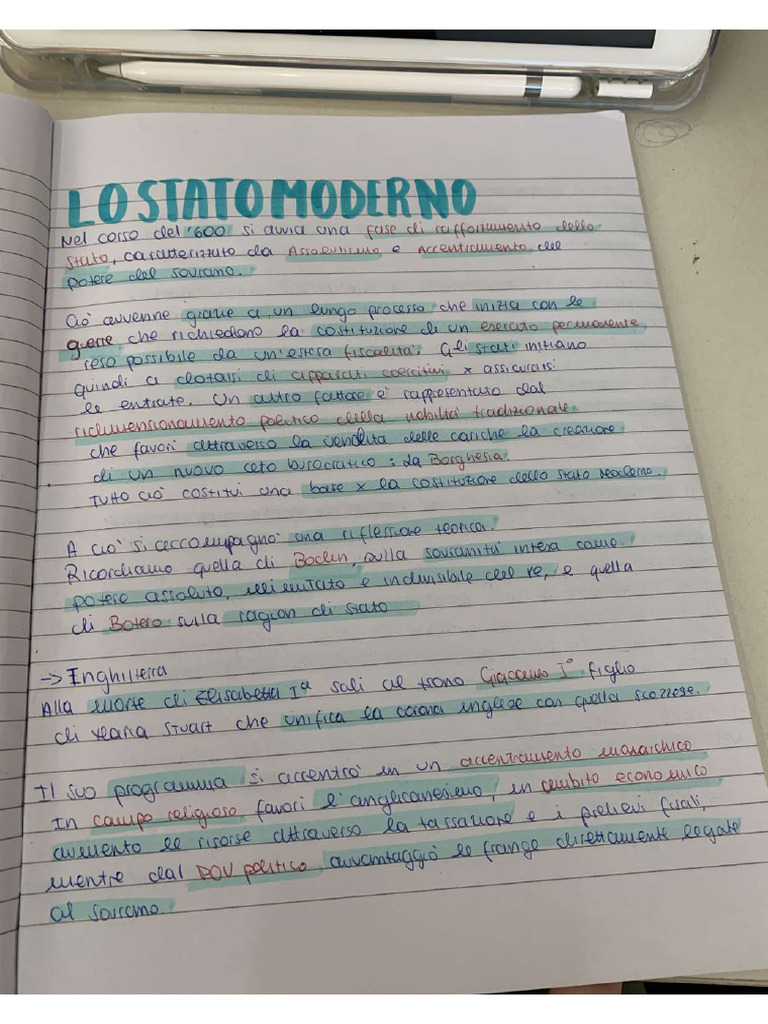 LO STATO MODERNO
Nel corso del '600 si avvia una fase di rafforzamento dello
stato, caratterizzato da Assolutismo e Accentramento del
potere del sovrano.
Ciò avvenne grazie a un lungo processo che inizia con le
guerre che richiedono la costituzione di un esercito permanente,
reso possibile da un'estesa fiscalità. Gli stati iniziano
quindi a dotarsi di apparati coercitivi x assicurarsi
le entrate. Un altro fattore è rappresentato dal
ridimensionamento politico della nobiltà tradizionale
che favorì attraverso la vendita delle cariche la creazione
di un nuovo ceto burocratico: la Borghesia.
Tutto ciò costituì una base x la costituzione dello stato Moderno.
A ciò si accompagnò una riflessione teorica.
Ricordiamo quella di Bodin, sulla sovranità intesa come
potere assoluto, illimitato e indivisibile del re, e quella
di Botero sulla ragion di stato
→ Inghilterra
Alla morte di Elisabetta Iª salì al trono Giacomo I° figlio
di Maria Stuart che unifica la corona inglese con quella scozzese.
Il suo programma si accentrò in un accentramento monarchico
In campo religioso favorì l'anglicanesimo, in ambito economico
aumento le risorse attraverso la tassazione e i prelievi fiscali,
mentre dal POV politico avvantaggiò le frange direttamente legate
al sovrano.